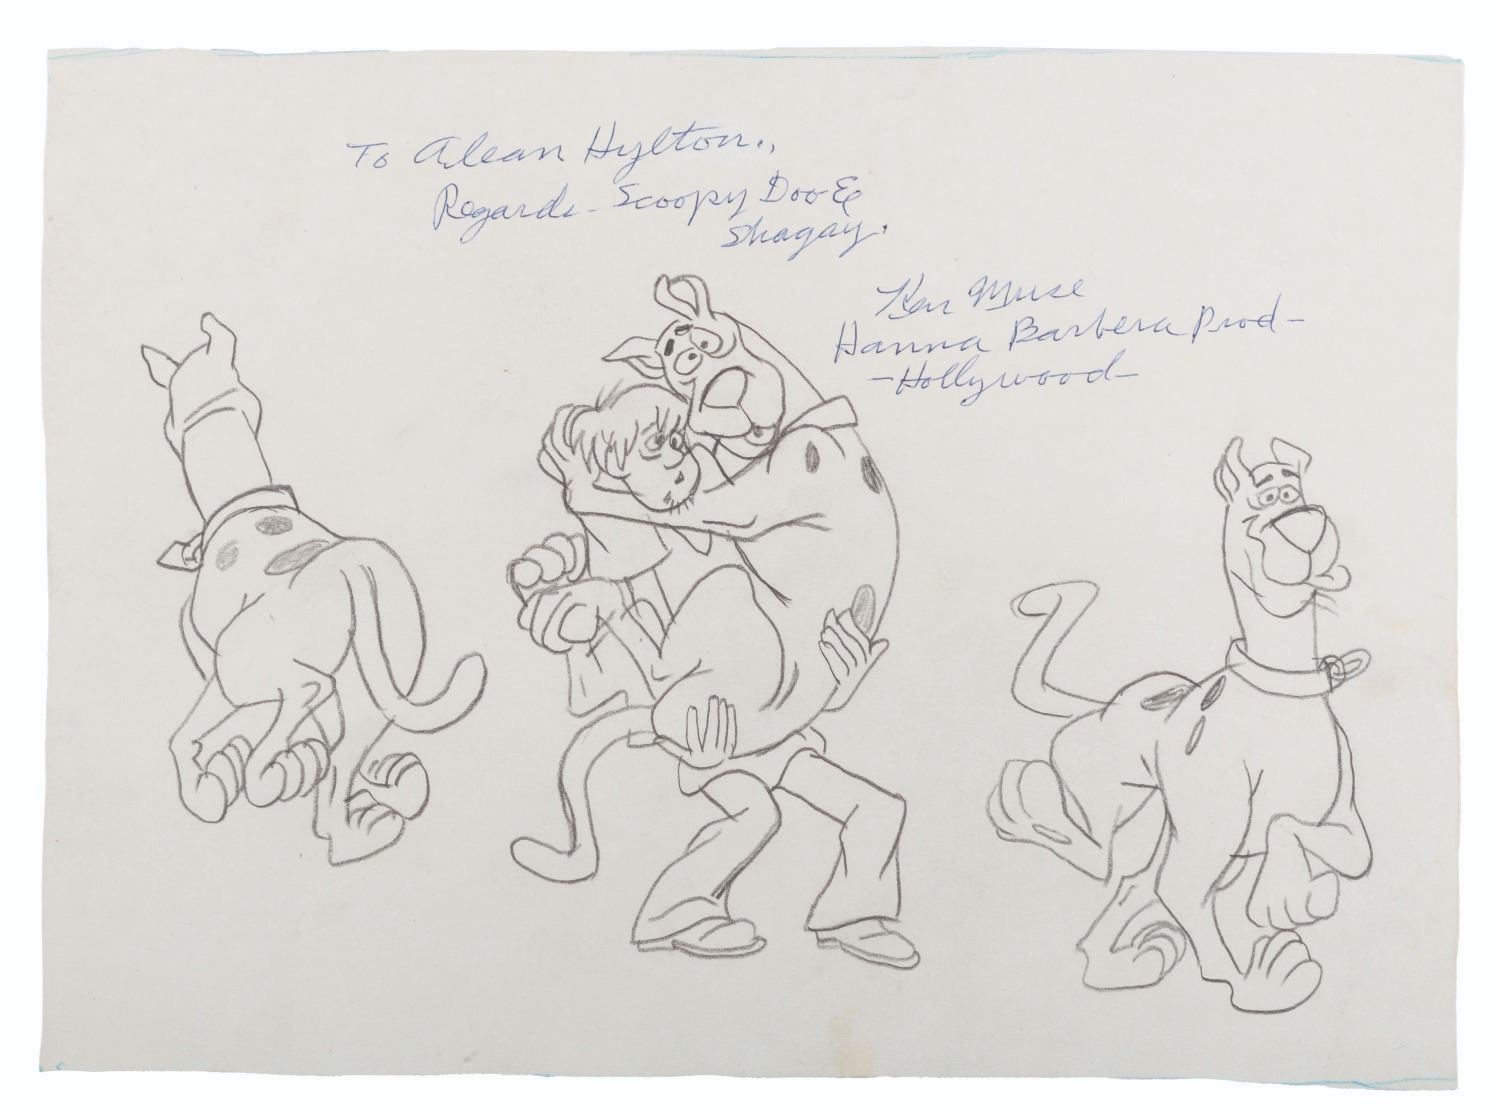 To Alean Hylton.,
Regards - Scoopy Doo &
Shagay.
Ken Muse
Hanna Barbera Prod-
-Hollywood-